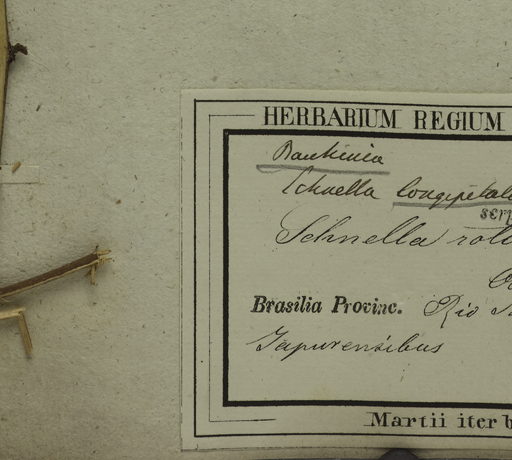 HERBARIUM REGIUM
Bauhinia
Schnella longipetala
scrp
Schnella
Brasilia Provinc. Rio
Japurensibus
Martii iter b